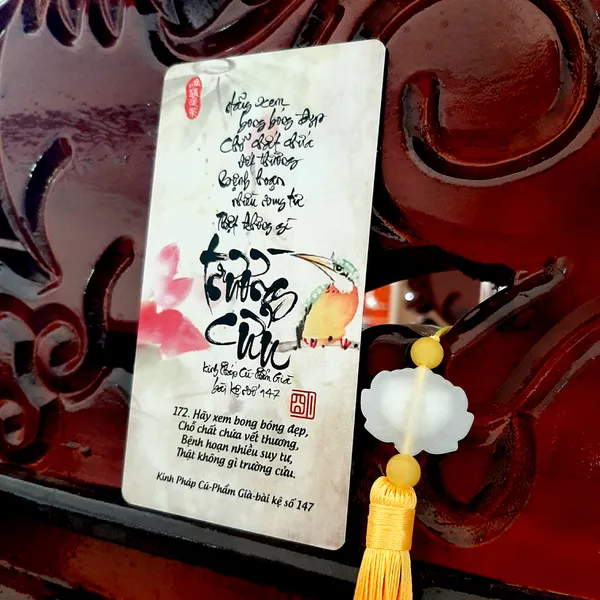 Hãy xem
bong bóng đẹp
Chỗ chất chứa
vết thương
Bệnh hoạn
nhiều suy tư
Thật không gì
trường
cửu
Kinh Pháp Cú-Phẩm Già
bài kệ số 147
172. Hãy xem bong bóng đẹp,
Chỗ chất chứa vết thương,
Bệnh hoạn nhiều suy tư,
Thật không gì trường cửu.
Kinh Pháp Cú-Phẩm Già-bài kệ số 147